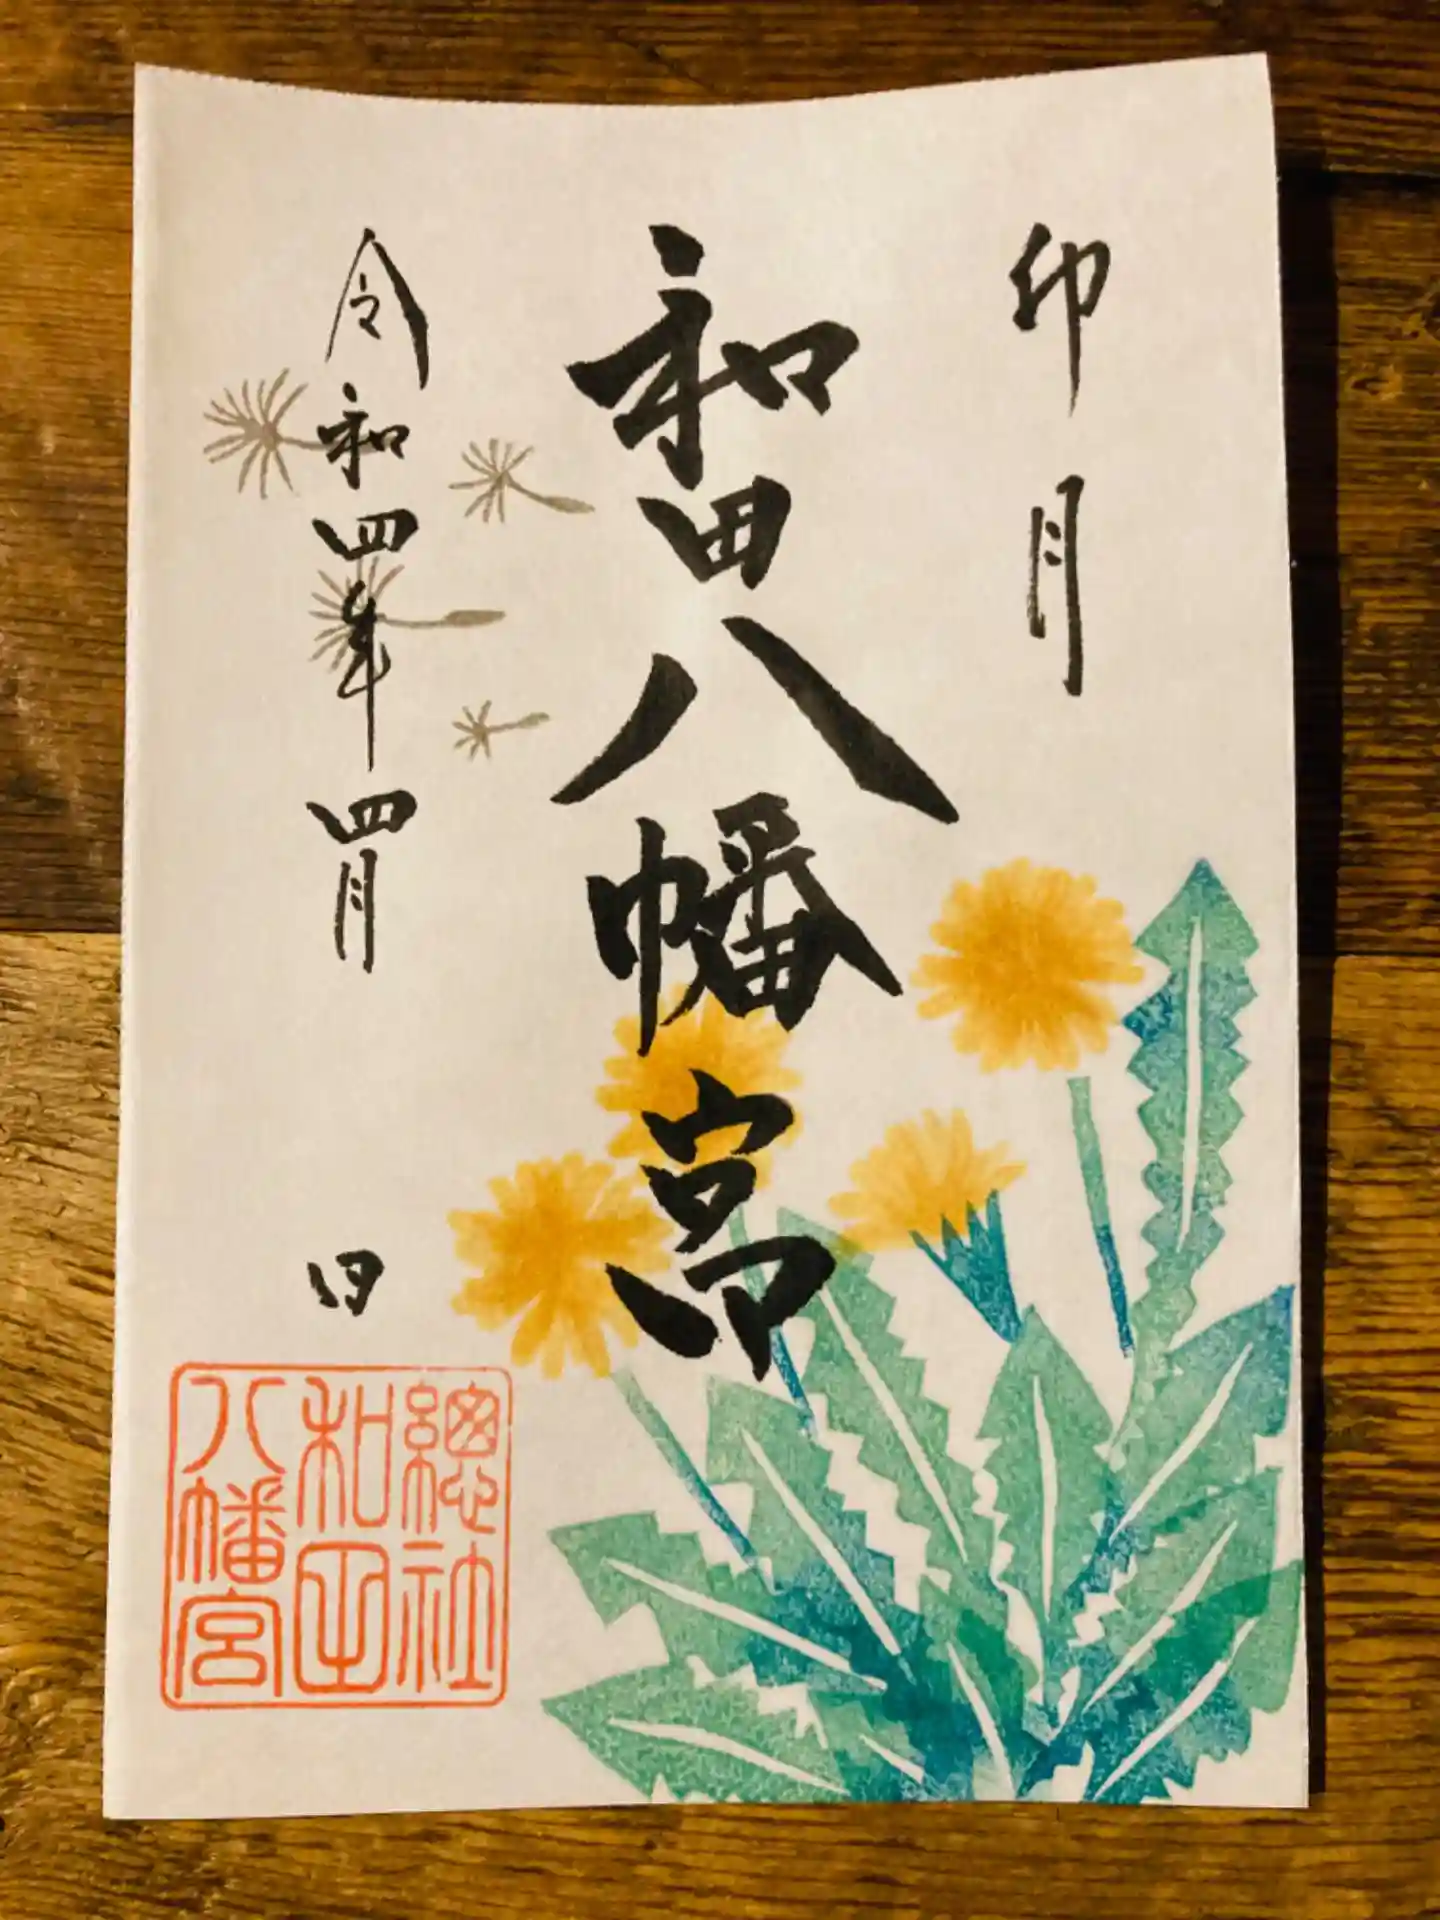 卯月
和田八幡宮
令和四年四月 日
總社
和田
八幡宮